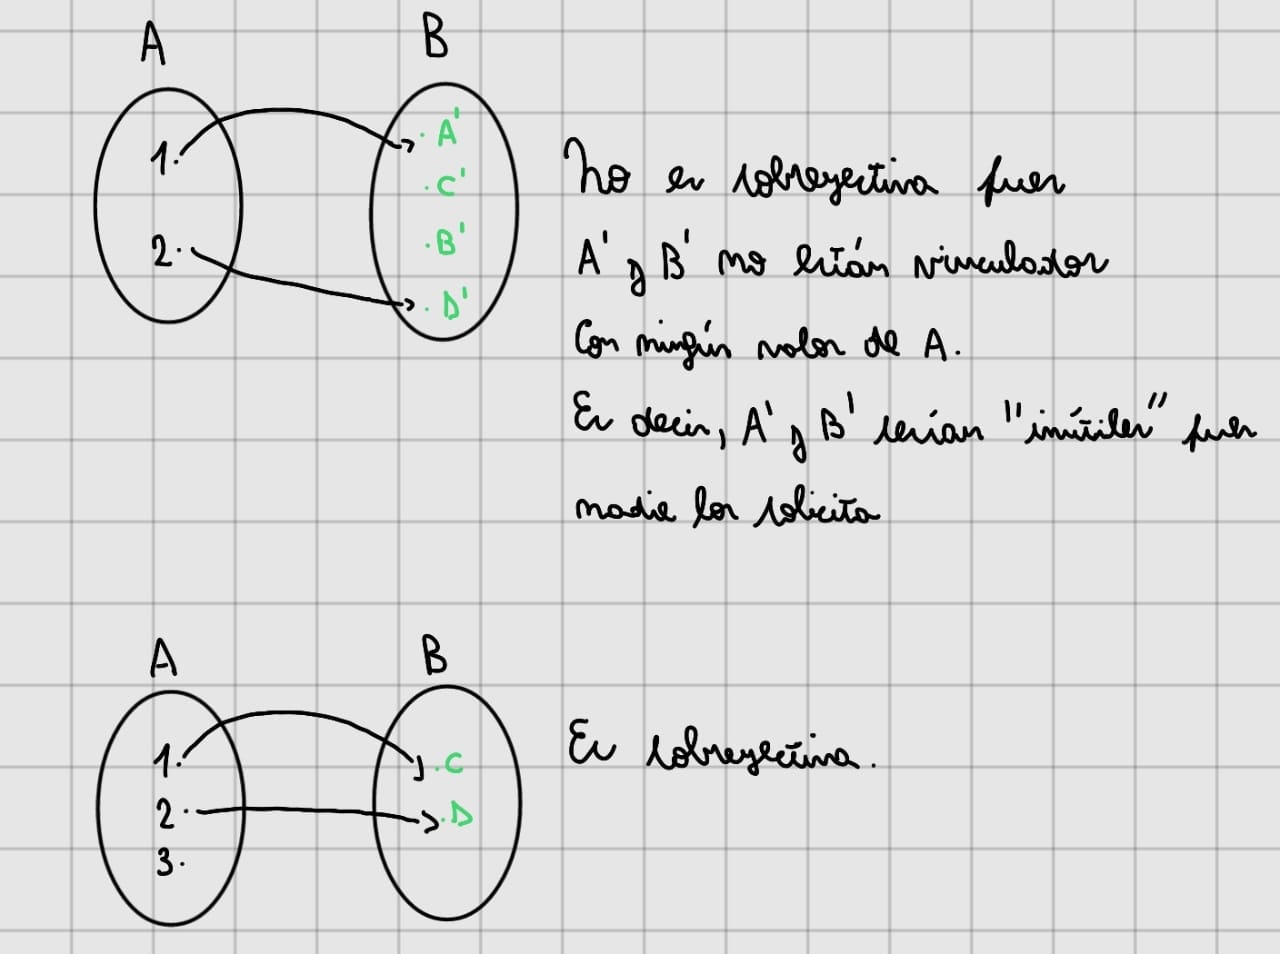 A
B
1.
2.
. A'
. C'
. B'
. D'
No es sobreyectiva pues
A' y B' no están vinculados
Con ningún valor de A.
Es decir, A' y B' serían "inútiles" pues
nadie los solicita
A
B
1.
2.
3.
. C
. D
Es sobreyectiva.